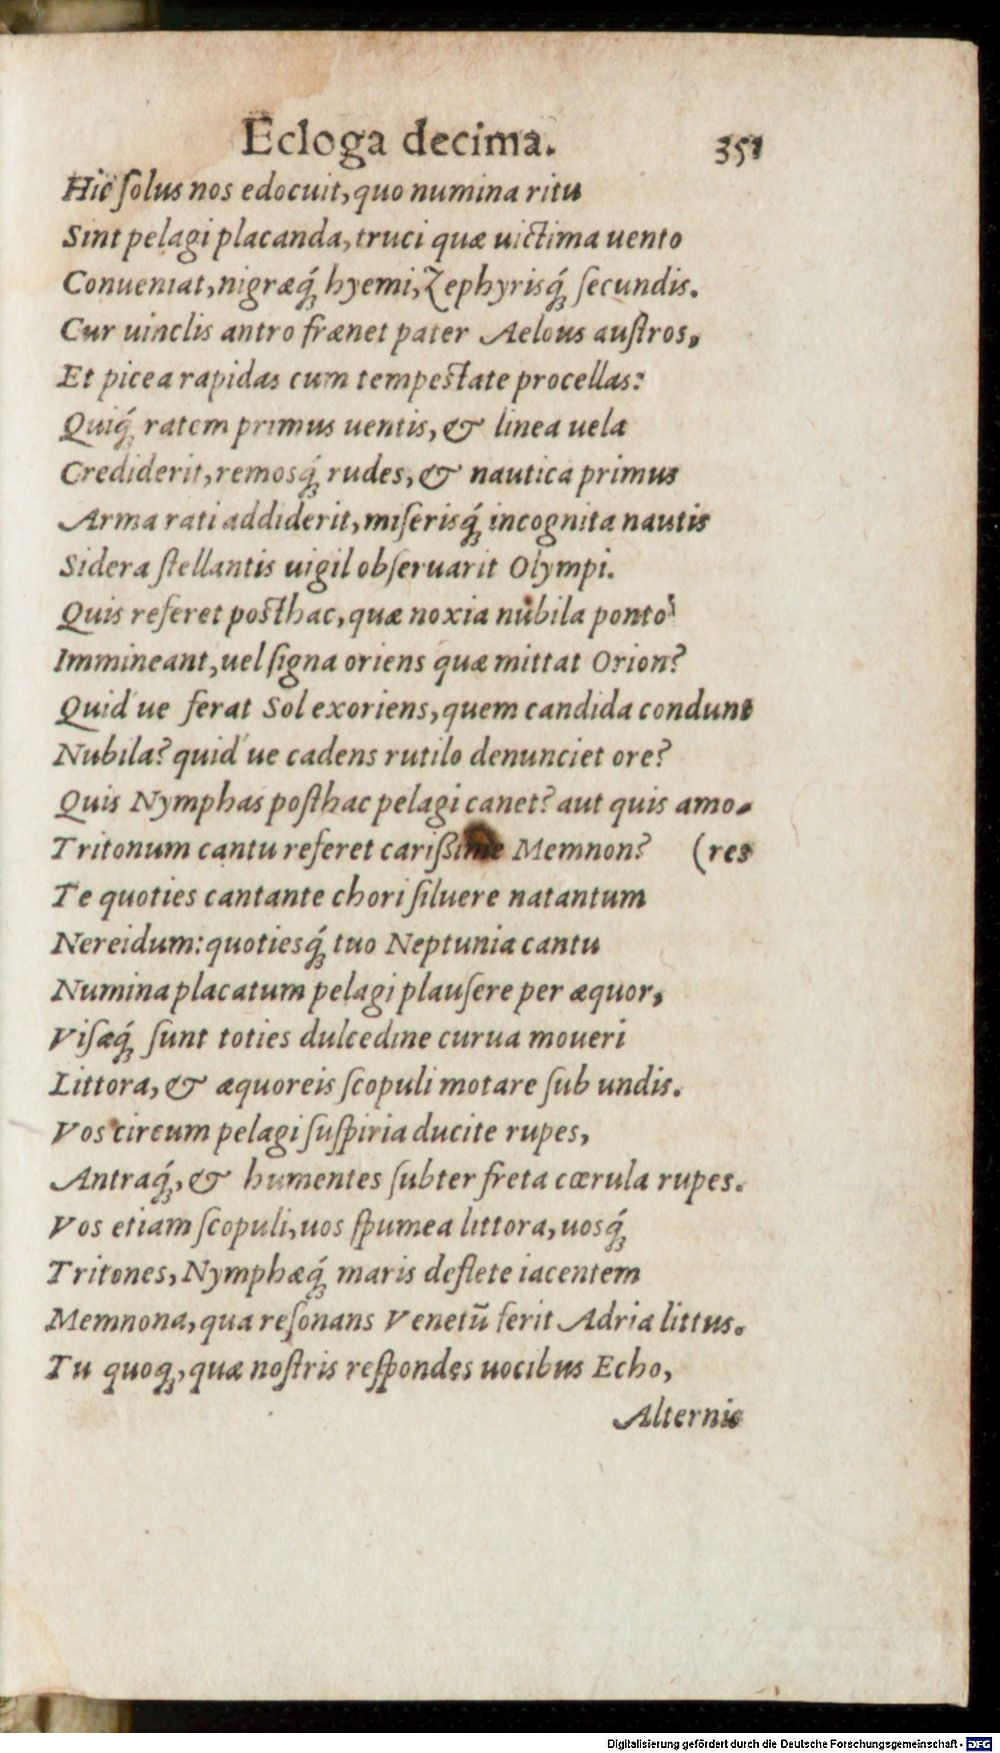 Ecloga decima. 351
Hic ſolus nos edocuit, quo numina ritu
Sint pelagi placanda, truci quæ uictima uento
Conueniat, nigræq́; hyemi, Zephyrisq́; ſecundis.
Cur uinclis antro frænet pater Aelous auſtros,
Et picea rapidas cum tempeſtate procellas:
Quiq́; ratem primus uentis, & linea uela
Crediderit, remosq́; rudes, & nautica primus
Arma rati addiderit, miſerisq́; incognita nautis
Sidera ſtellantis uigil obſeruarit Olympi.
Quis referet poſthac, quæ noxia nubila ponto
Immineant, uel ſigna oriens quæ mittat Orion?
Quid ue ferat Sol exoriens, quem candida condunt
Nubila? quid ue cadens rutilo denunciet ore?
Quis Nymphas poſthac pelagi canet? aut quis amo-
Tritonum cantu referet carißime Memnon? (res
Te quoties cantante chori ſiluere natantum
Nereidum: quotiesq́; tuo Neptunia cantu
Numina placatum pelagi plauſere per æquor,
Viſæq́; ſunt toties dulcedine curua moueri
Littora, & æquoreis ſcopuli motare ſub undis.
Vos circum pelagi ſuſpiria ducite rupes,
Antraq́;, & humentes ſubter freta cœrula rupes.
Vos etiam ſcopuli, uos ſpumea littora, uosq́;
Tritones, Nymphæq́; maris deflete iacentem
Memnona, qua reſonans Venetū ferit Adria littus.
Tu quoq;, quæ noſtris reſpondes uocibus Echo,
Alternis
Digitalisierung gefördert durch die Deutsche Forschungsgemeinschaft - DFG